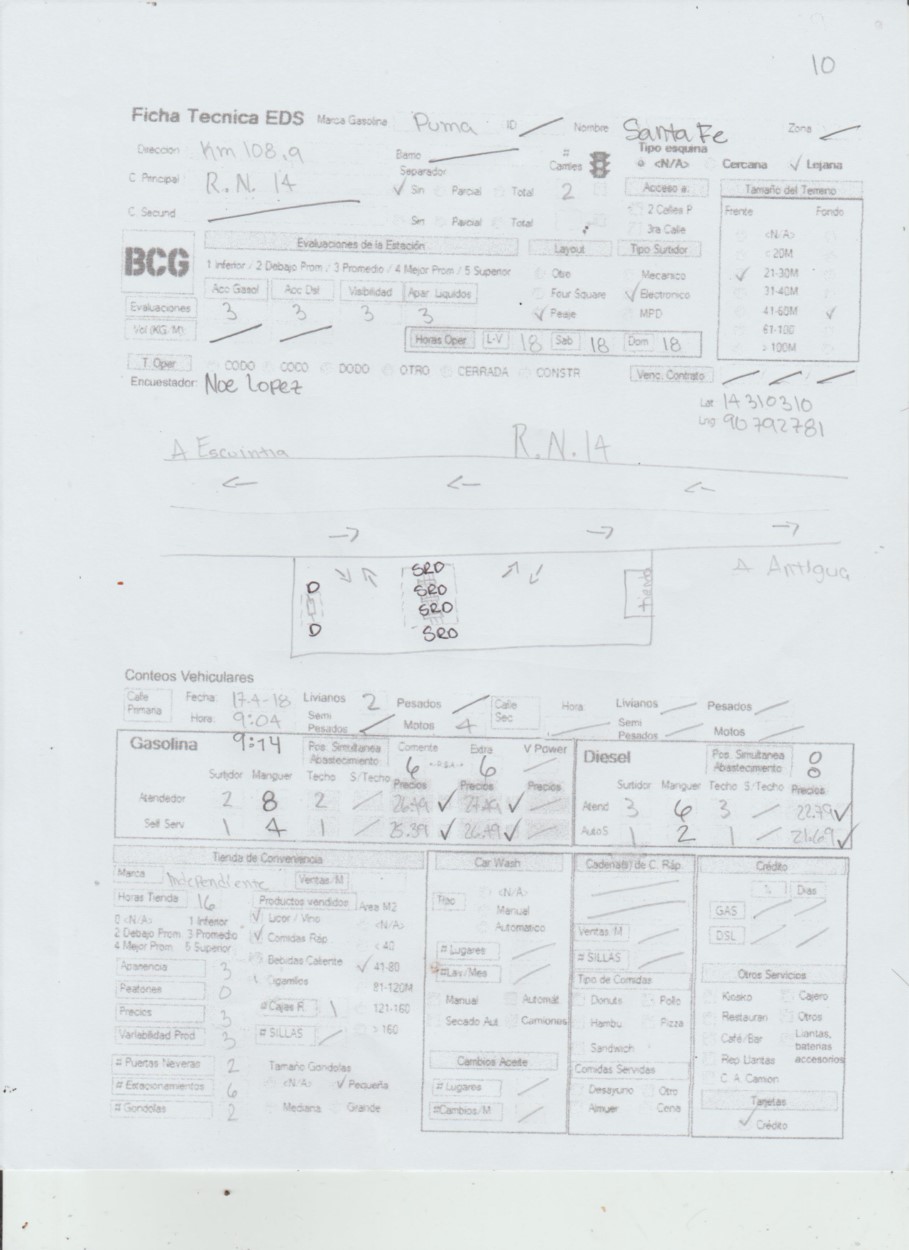 10
Ficha Tecnica EDS Marca Gasolina Puma ID Nombre Santa Fe Zona
Direccion Km 108.9 Barrio # Carriles Tipo esquina <N/A> Cercana Lejana
C Principal R.N. 14 Separador Sin Parcial Total 2 Acceso a: Tamaño del Terreno
C Secund Sin Parcial Total 2 Calles P Frente Fondo
3ra Calle <N/A>
BCG Evaluaciones de la Estación Layout Tipo Surtidor < 20M
1 Inferior / 2 Debajo Prom / 3 Promedio / 4 Mejor Prom / 5 Superior Otre Mecanico 21-30M
Acc Gasol Acc Dsl Visibilidad Apar Liquidos Four Square Electronico 31-40M
Evaluaciones 3 3 3 3 Peaje MPD 41-60M
Vol (KG/M) Horas Oper L-V 18 Sab 18 Dom 18 61-100
> 100M
T. Oper CODO COCO DODO OTRO CERRADA CONSTR. Venc. Contrato
Encuestador: Noe Lopez
Lat 14 310310
Lng 90 792781
A Escuintla R.N.14
A Antigua
D SRD
SRD
SRD
D SRD
tienda
Conteos Vehiculares
Calle Primaria Fecha: 17-4-18 Livianos 2 Pesados Calle Sec Hora: Livianos Pesados
Hora: 9:04 Semi Pesados Motos 4 Semi Pesados Motos
Gasolina 9:14 Pos. Simultanea Abastecimiento Corriente 6 Extra 6 V Power Diesel Pos. Simultanea Abastecimiento 8
Surtidor Manguer Techo S/Techo Precios Precios Precios Surtidor Manguer Techo S/Techo Precios
Atendedor 2 8 2 26.49 27.49 Atend 3 6 3 22.79
Self Serv 1 4 1 25.39 26.49 AutoS 1 2 1 21.69
Tienda de Conveniencia Car Wash Cadena(s) de C. Ráp. Crédito
Marca Independiente Ventas/M % Dias
Horas Tienda 16 Productos vendidos Area M2 Tipo <N/A> GAS
0 <N/A> 1 Inferior Licor / Vino <N/A> Manual
2 Debajo Prom 3 Promedio Comidas Ráp < 40 Automatico Ventas/M DSL
4 Mejor Prom 5 Superior Bebidas Caliente 41-80 # Lugares # SILLAS
Apariencia 3 Cigarrillos 81-120M #Lav/Mes Tipo de Comidas Otros Servicios
Peatones 0 # Cajas R. 1 121-160 Manual Automát. Donuts Pollo Kiosko Cajero
Precios 3 # SILLAS > 160 Secado Aut Camiones Hambu Pizza Restauran Otros
Variabilidad Prod 3 Sandwich Café/Bar Llantas, baterias accesorios
# Puertas Neveras 2 Tamaño Gondolas Cambios Aceite Comidas Servidas Rep Llantas
# Estacionamientos 6 <N/A> Pequeña # Lugares Desayuno Otro C. A. Camión
# Gondolas 2 Mediana Grande #Cambios/M Almuer Cena Tarjetas
Crédito